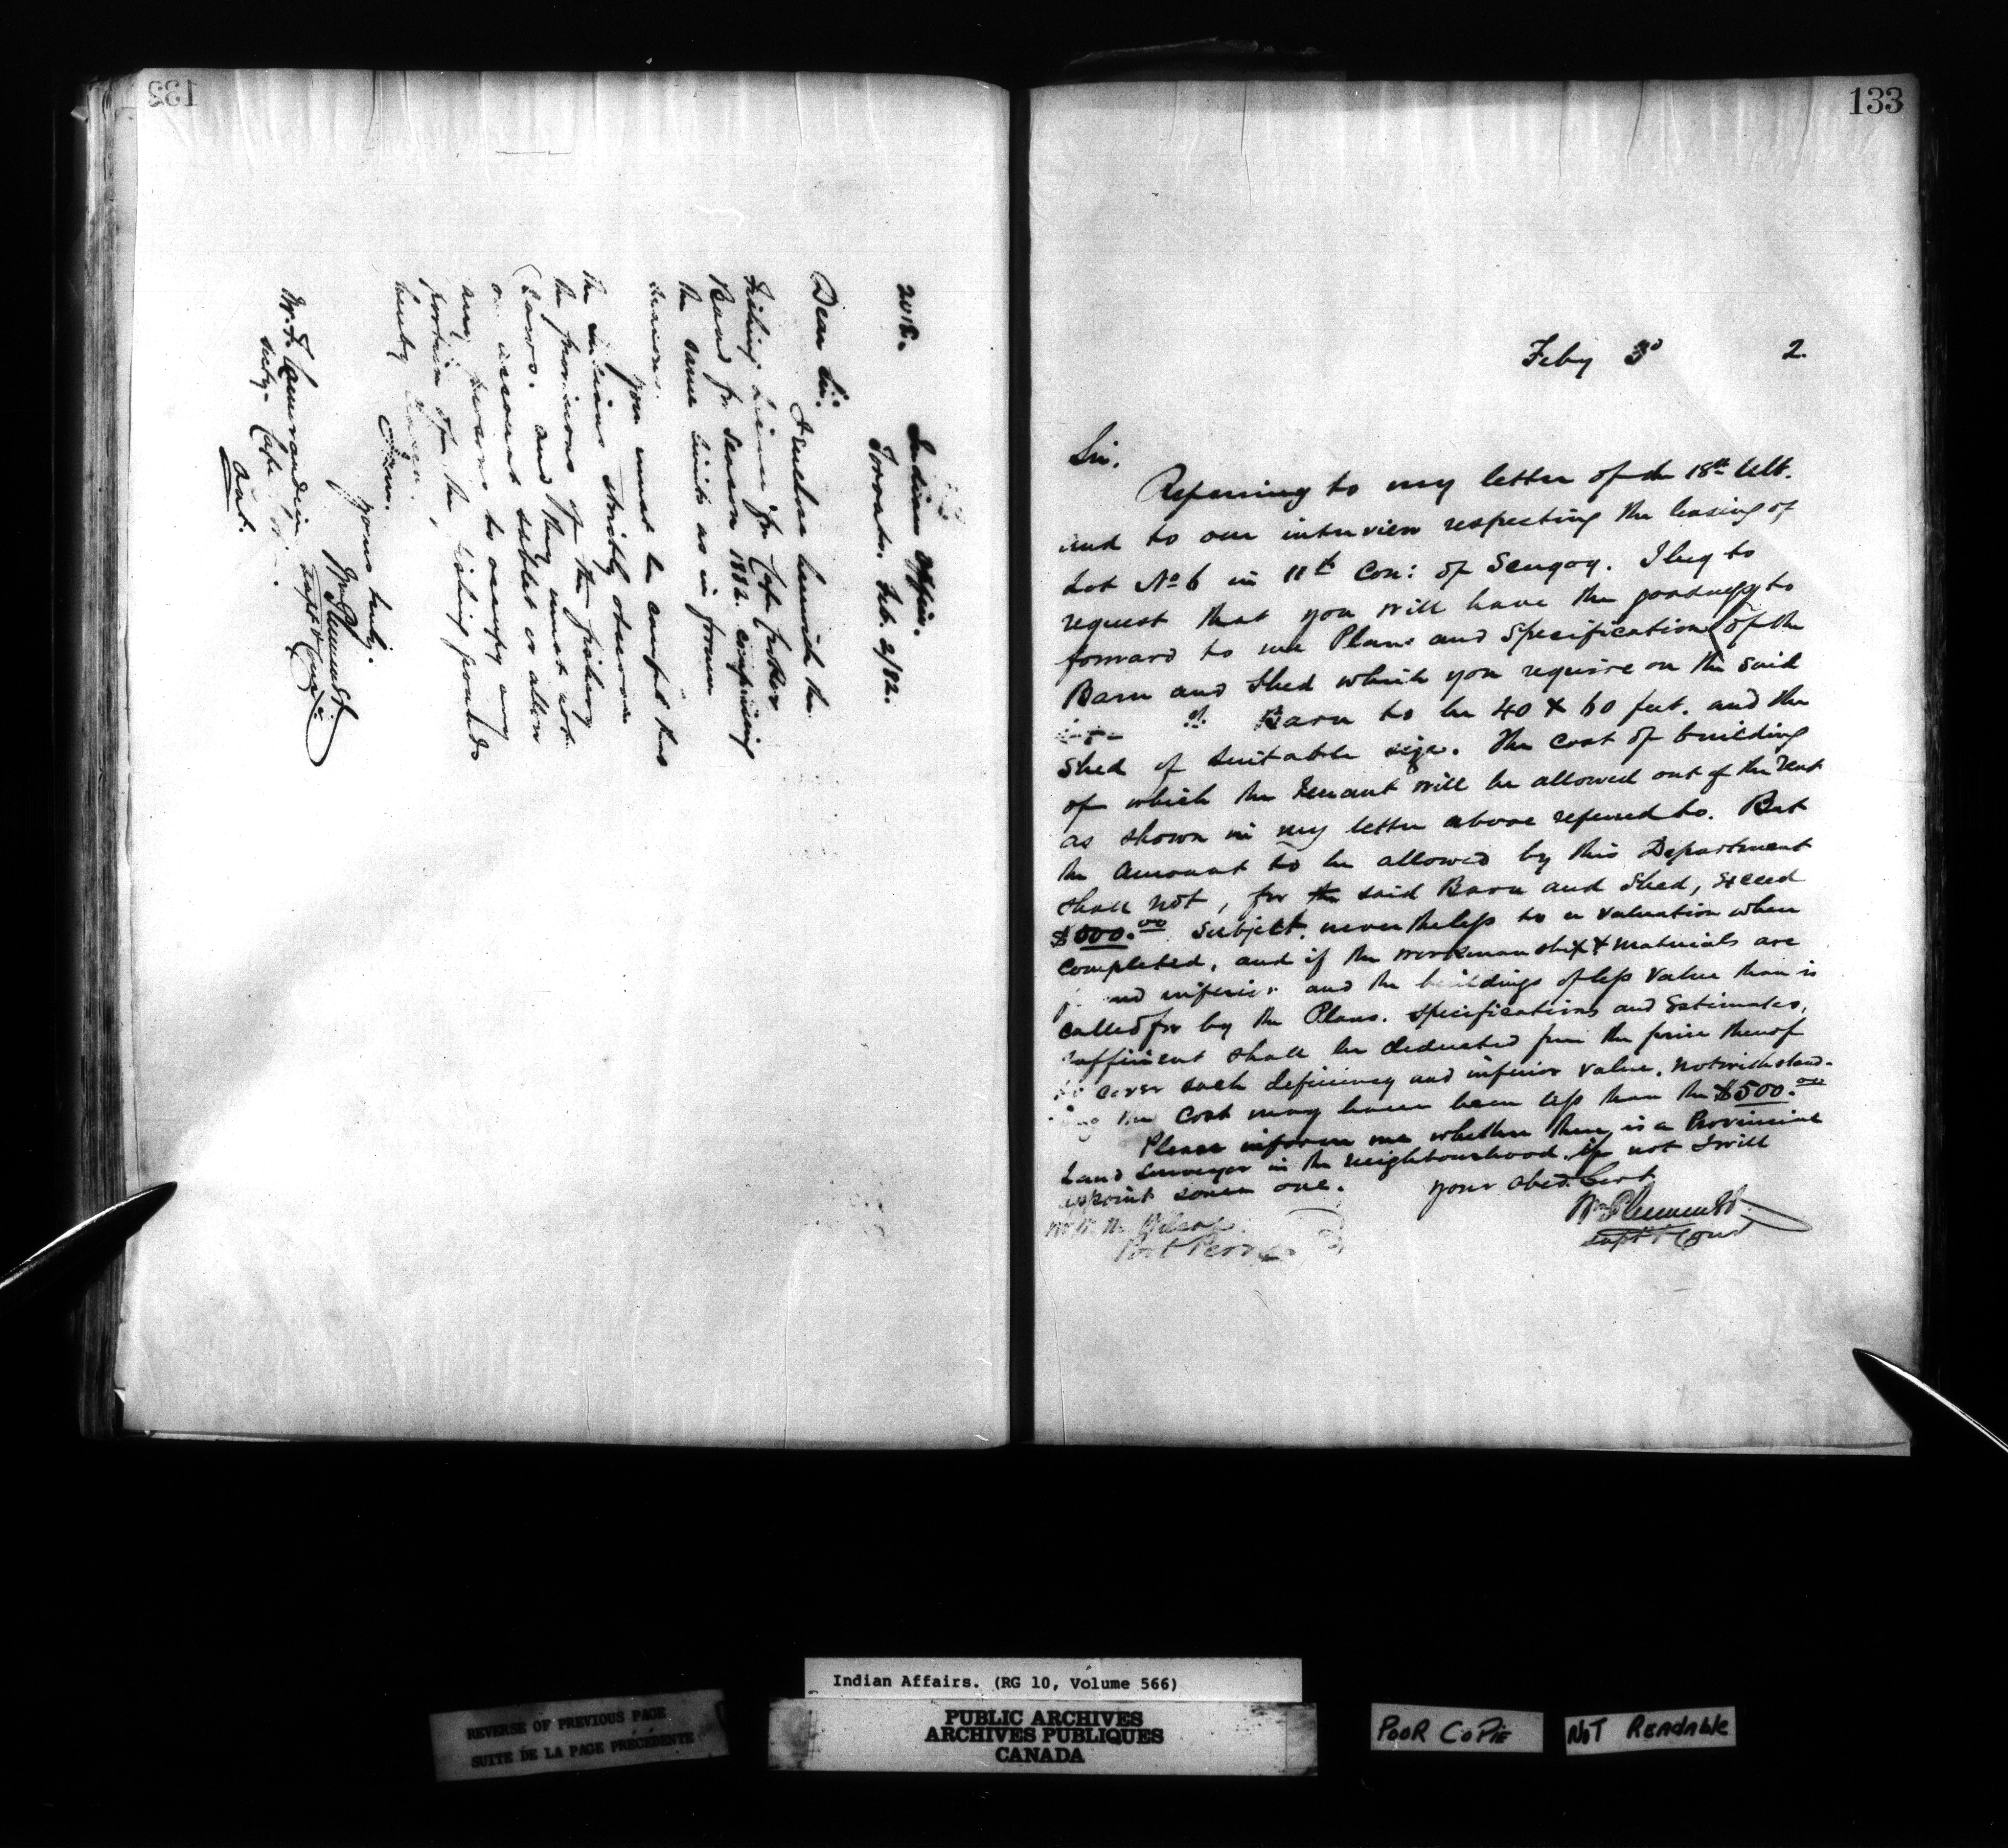 132
2018.
Indian Office.
Toronto. Feb. 2/82.
Dear Sir.
I enclose herewith the
fishing license for Cape Croker
Band for season 1882. comprising
the same limits as in former
seasons.
you must be careful that
the Indians strictly observe
the provisions of the fishery
Laws. and they must not
on account sublet or allow
any persons to occupy any
portion of the fishing grounds
hereby
yours truly.
Wm Plummer
Supt &
W. F.
Secty. Cape
Ont.
133
Feby 3d 2.
Sir.
Referring to my letter of the 18th Ult.
and to our interview respecting the leasing of
Lot No 6 in 11th Con: of Scugog. I beg to
request that you will have the goodness to
forward to me Plans and Specifications of the
Barn and Shed which you require on the said
Barn to be 40 x 60 feet. and the
Shed of suitable size. The cost of building
of which the Tenant will be allowed out of the rent
as shown in my letter above referred to. But
the amount to be allowed by this Department
shall not, for the said Barn and Shed, exceed
$500.00 Subject. nevertheless to a valuation when
completed, and if the workmanship & materials are
inferior and the buildings of less value than is
called for by the Plans. Specifications and Estimates,
sufficient shall be deducted from the price thereof
to cover such deficiency and inferior value. notwithstand-
ing the cost may have been less than the $500.00
Please inform me whether there is a Provincial
Land Surveyor in the neighbourhood. if not I will
appoint some one. Your Obed. Servt
Wm Plummer
Supt & Com
Port Perry
Indian Affairs. (RG 10, Volume 566)
REVERSE OF PREVIOUS PAGE
SUITE DE LA PAGE PRÉCÉDENTE
PUBLIC ARCHIVES
ARCHIVES PUBLIQUES
CANADA
POOR COPIE
NOT READABLE